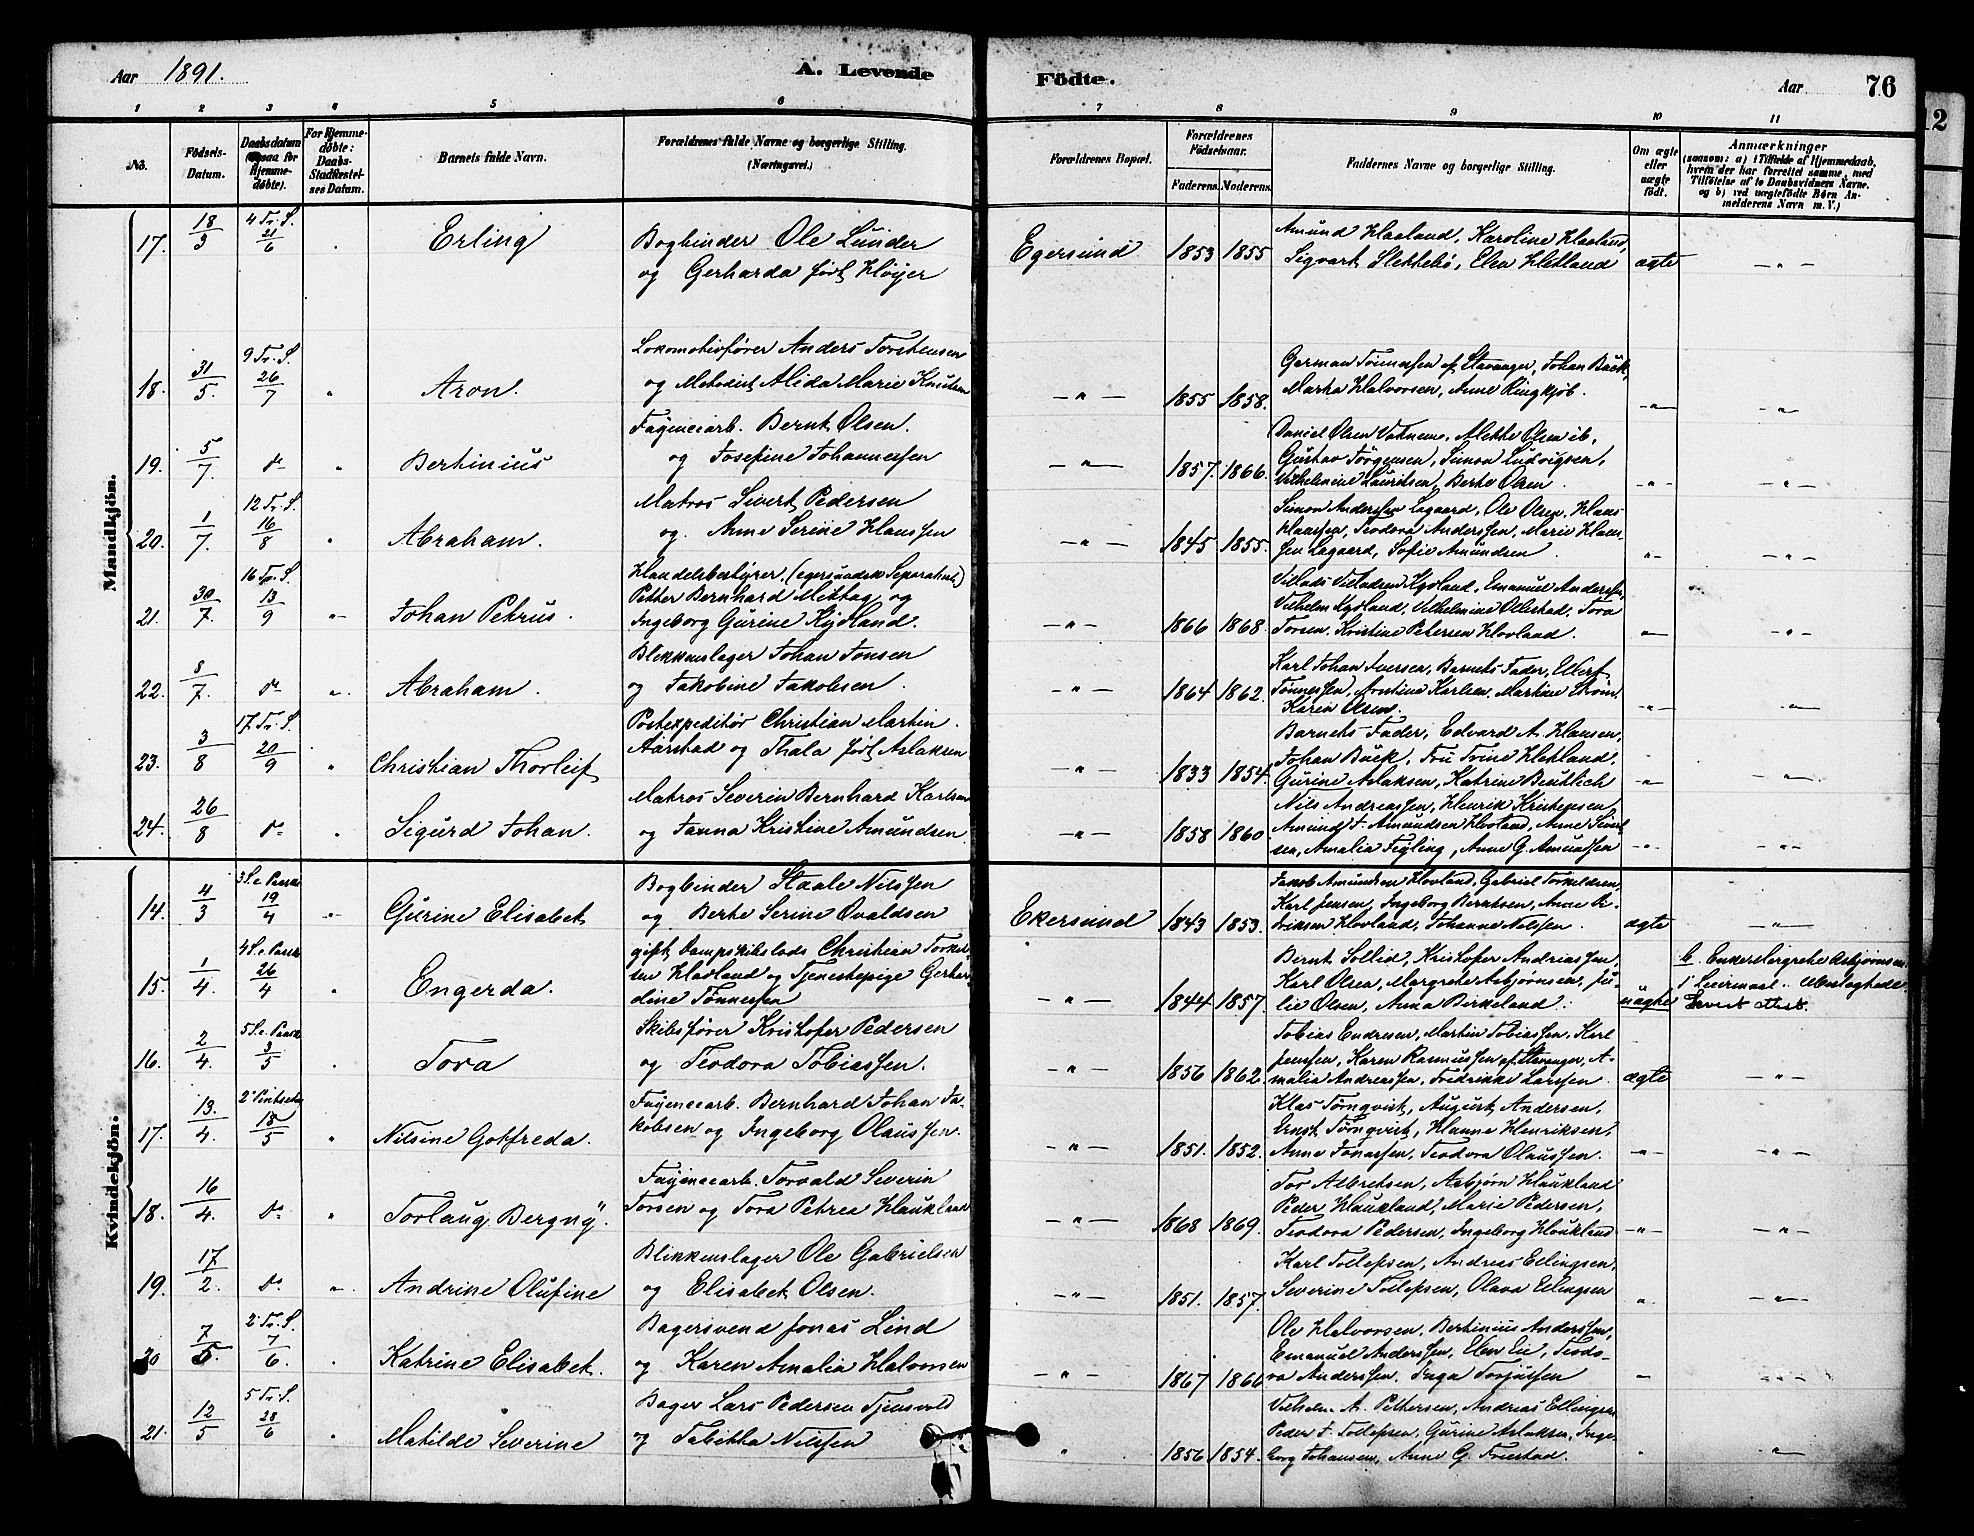 Aar 1891.
A. Levende Födte.
Aar 76
1 2 3 4 5 6 7 8 9 10 11
No.
Födsels-Datum.
Daabsdatum (ogsaa for Hjemmedøbte).
For Hjemmedøbte: Daabs-Stadfæstelses Datum.
Barnets fulde Navn.
Forældrenes fulde Navne og borgerlige Stilling.
(Næringsvei.)
Forældrenes Bopæl.
Forældrenes Födselsaar.
Faderens. Moderens.
Faddernes Navne og borgerlige Stilling.
Om ægte eller uægte födt.
Anmærkninger
(saasom: a) i Tilfælde af Hjemmedaab, hvem der har forrettet samme, med Tilföielse af to Daabsvidners Navne. og b) ved uægtefödte Börn Anmelderens Navn m. V.)
Mandkjön.
17. 18/3 4 Tr. S. 21/6 " Erling
Bogbinder Ole Lunder
og Gerharda født Høyer
Egersund 1853 1855
Amund Haaland, Karoline Haaland,
Sigvart Slettebö, Elen Hetland
ægte — " —
18. 31/5. 9 Tr. S. 26/7 " Aron.
Lokomotivfører Anders Torstensen
og Methodist Alida Marie Knutsen
— " — 1855 1858.
German Tönnessen af Stavanger, Johan Buck,
Martha Halvorsen, Anne Ringkjöb.
— " — — " —
19. 5/7. do " Bertinius
Fayencearb. Bernt Olsen.
og Josefine Johannessen
— " — 1857. 1866.
Daniel Olsen Vatnene, Alette Olsen ib,
Gustav Jörgensen, Simon Ludvigsen,
Vilhelmine Lauritsen, Berte Olsen
— " — — " —
20. 1/7. 12 Tr. S. 16/8 " Abraham.
Matros Sivert Pedersen
og Anne Serine Hanssen
— " — 1845 1855.
Simon Anderssen Lagaard, Ole Olsen, Hans
Hanssen, Teodora Anderssen, Marie Hans-
sen Lagaard, Sofie Amundsen.
— " — — " —
21. 30/7. 16 Tr. S. 13/9 " Johan Petrus.
Handelsbestyrer, (egersundsk Separatist)
Petter Bernhard Mittag og
Ingeborg Gurine Kydland.
— " — 1866 1868
Villads Villadsen Kydland, Emanuel Anderssen,
Vilhelm Kydland, Vilhelmine Ollestad, Tora
Torsen, Kristine Petersen Hovland.
— " — — " —
22. 8/7. do " Abraham.
Blikkenslager Johan Jonsen
og Jakobine Jakobsen.
— " — 1864 1862.
Karl Johan Iversen, Barnets Fader, Elert
Tönnessen, Karlsen, Martine Ström,
Karen Olsen.
— " — — " —
23. 3/8 17. Tr. S. 20/9 " Christian Thorleif
Postexpeditör Christian Martin
Aarstad og Thala født Aslaksen
— " — 1833 1854.
Barnets Fader, Edvard A. Hansen,
Johan Buck, Fru Trine Hetland,
Gurine Aslaksen, Katrine Beutlich
— " — — " —
24. 26/8 do " Sigurd Johan.
Matros Severin Bernhard Karlsen
og Janna Kristine Amundsen.
— " — 1858 1860
Nils Andreassen, Henrik Kristensen,
Amund J. Amundsen Hovland, Anne Sivert-
sen, Amalia Feyling, Anne G. Amundsen
— " — — " —
Kvindekjön.
14. 4/3 3 S. e. Paaske 19/4 " Gurine Elisabet
Bogbinder Staale Nilssen
og Berte Serine Ovaldsen
Ekersund 1843 1853.
Jakob Amundsen Hovland, Gabriel Torkeldsen,
Karl Jensen, Ingeborg Berntsen, Anne
Eriksen Hovland, Johanne Nilssen.
ægte — " —
15. 1/4. 4 S. e. Paaske 26/4 Engerda.
gift Dampskibslods Christian Torkel-
sen Hadland og Tjenestepige Gerhar-
dine Tönnessen
— " — 1844 1857.
Bernt Sollid, Kristofer Andreassen,
Karl Olsen, Margrete Asbjörnsen, Ju-
lie Olsen, Anna Birkeland.
uægte b. Enke Margrethe Asbjörnsen.
16. 2/4. 5 S. e. Paaske 3/5 Tora
Skibsförer Kristofer Pedersen
og Teodora Tobiassen.
— " — 1856 1862.
Tobias Endresen, Martin Tobiassen, Karl
Jenssen, Karen Rasmussen af Stavanger, A-
malia Andreassen, Fredrikke Larssen.
ægte — " —
17. 13./4. 2 Pintsedag 18/5 " Nilsine Gotfreda.
Fayencearb. Bernhard Johan Ja-
kobsen og Ingeborg Olaussen.
— " — 1851. 1852.
Klas Törnqvist, August Andersen,
Ernst Törnqvist, Hanne Henriksen,
Anne Jonassen, Teodora Olaussen.
— " — — " —
18. 16/4. do " Torlaug Bergny.
Fayencearb. Torvald Severin
Torsen og Tora Petrea Haukland
— " — 1868 1869.
Tor Albretsen, Asbjörn Haukland
Peder Haukland, Marie Pedersen,
Teodora Pedersen, Ingeborg Haukland
— " — — " —
19. 17/2. do " Andrine Olufine
Blikkenslager Ole Gabrielsen
og Elisabet Olsen.
— " — 1851. 1857.
Karl Tollefsen, Andreas Ellingsen,
Severine Tollefsen, Olava Ellingsen
" — " —
20 7/5. 2 Tr. S. 7/6. Katrine Elisabet.
Bagersvend Jonas Lind
og Karen Amalia Halvorsen
— " — 1867 1866
Ole Halvorsen, Bertinius Anderssen,
Emanuel Anderssen, Elen Lie, Teodo-
ra Anderssen, Inga Torjussen
— — " —
21. 12/5 5 Tr. S. 28/6 " Matilde Severine
Bager Lars Pedersen Tjensvold
og Tabitha Nilssen
" 1856 1854.
Vilhelm A. Pettersen, Andreas Ellingsen
Peder J. Tollefsen, Gurine Aslaksen, Inge-
borg Johansen, Anne G. Frestad.
" "
12